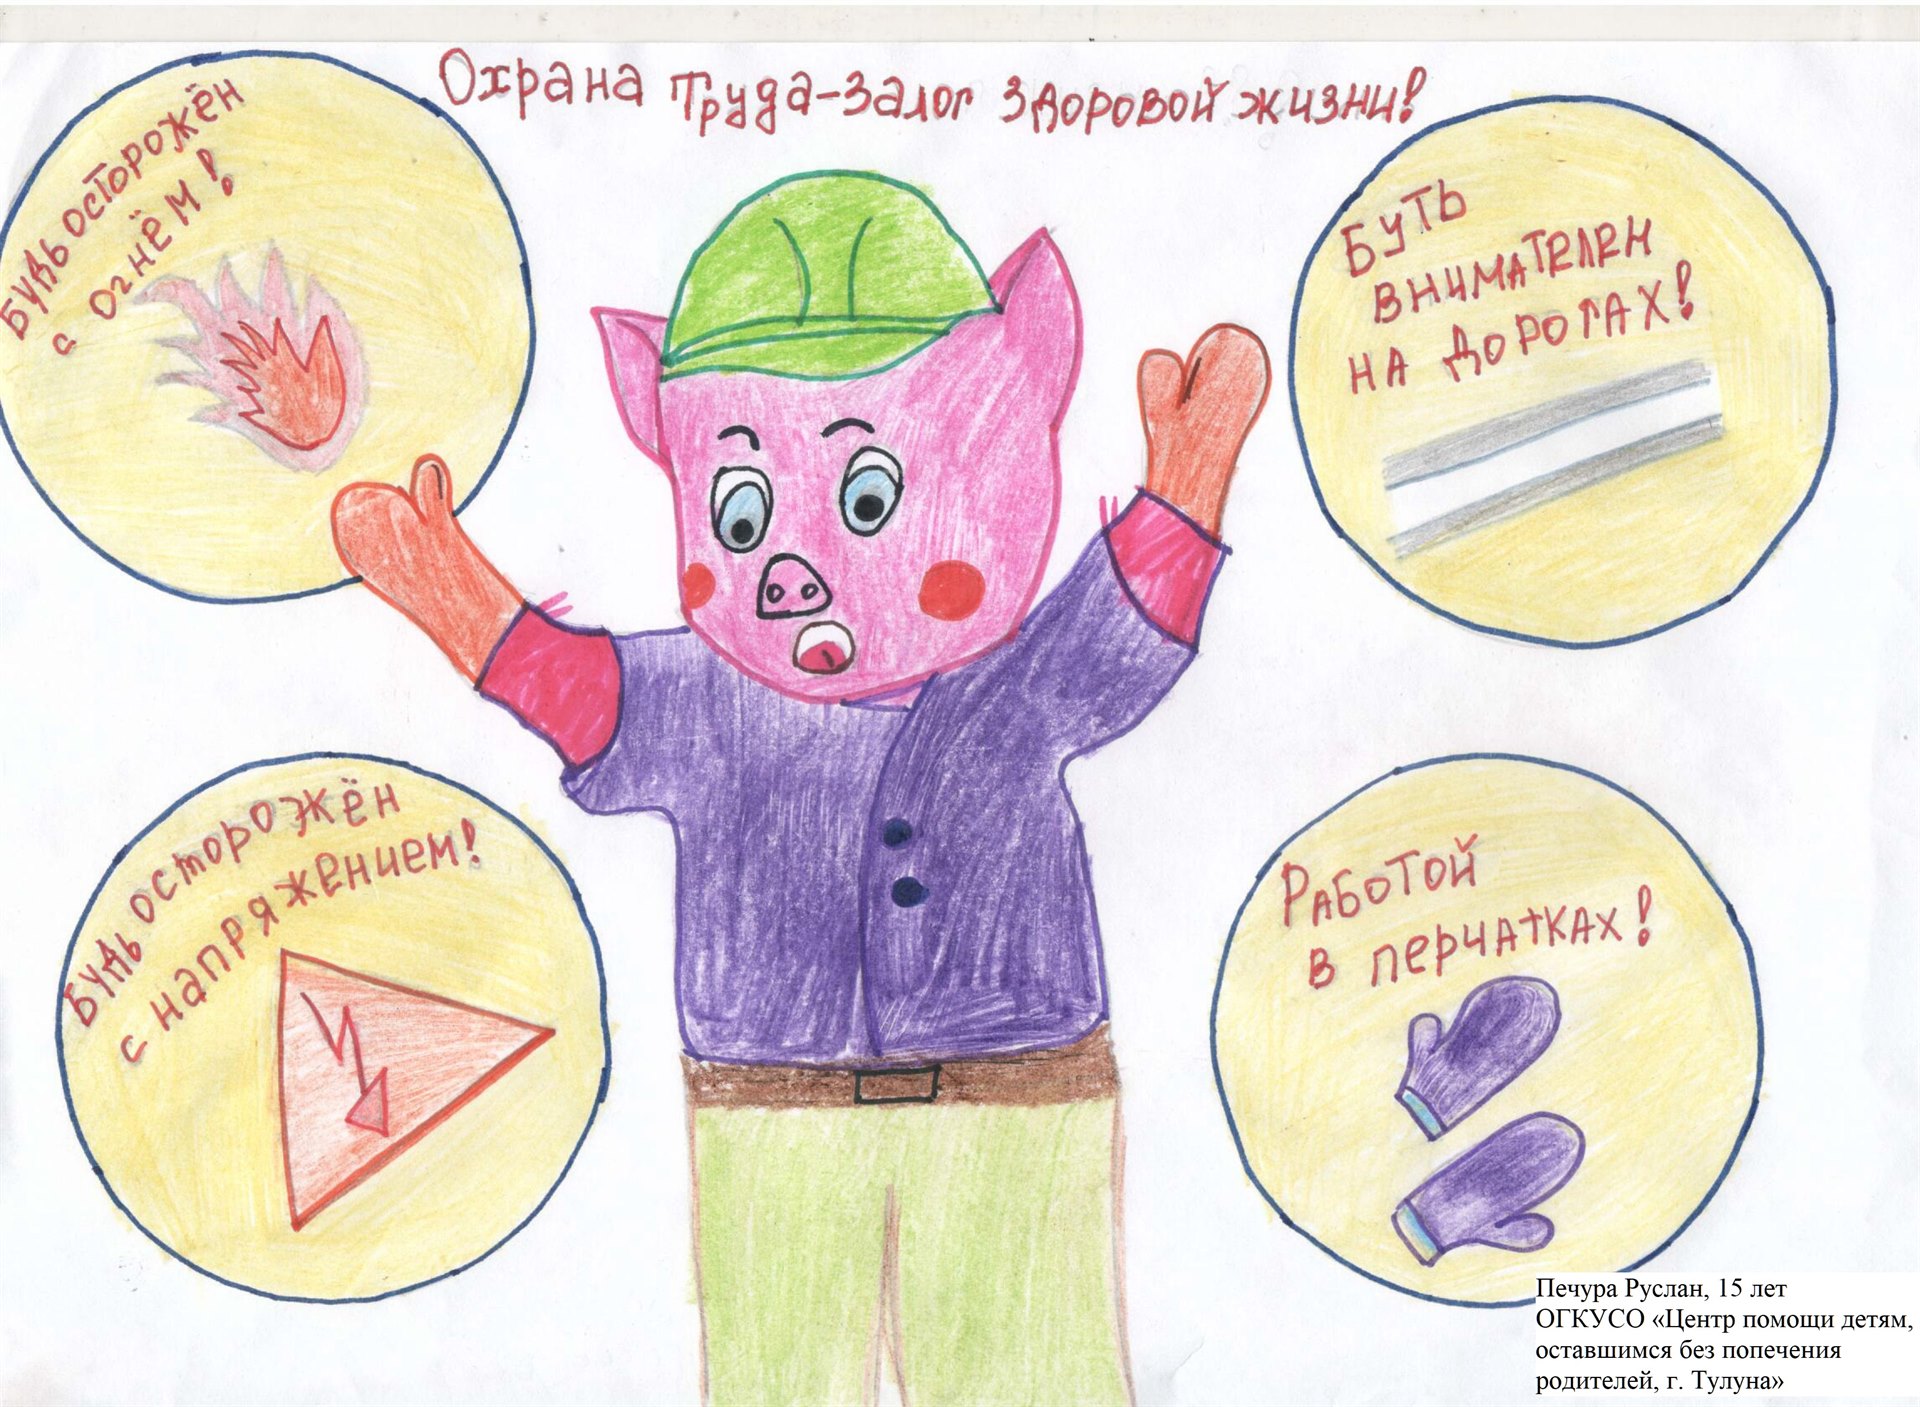 Охрана Труда-Залог Здоровой жизни!
Будь осторожён
с огнём!
Буть
внимателен
на дорогах!
Будь осторожён
с напряжением!
Работой
в перчатках!
Печура Руслан, 15 лет
ОГКУСО «Центр помощи детям,
оставшимся без попечения
родителей, г. Тулуна»